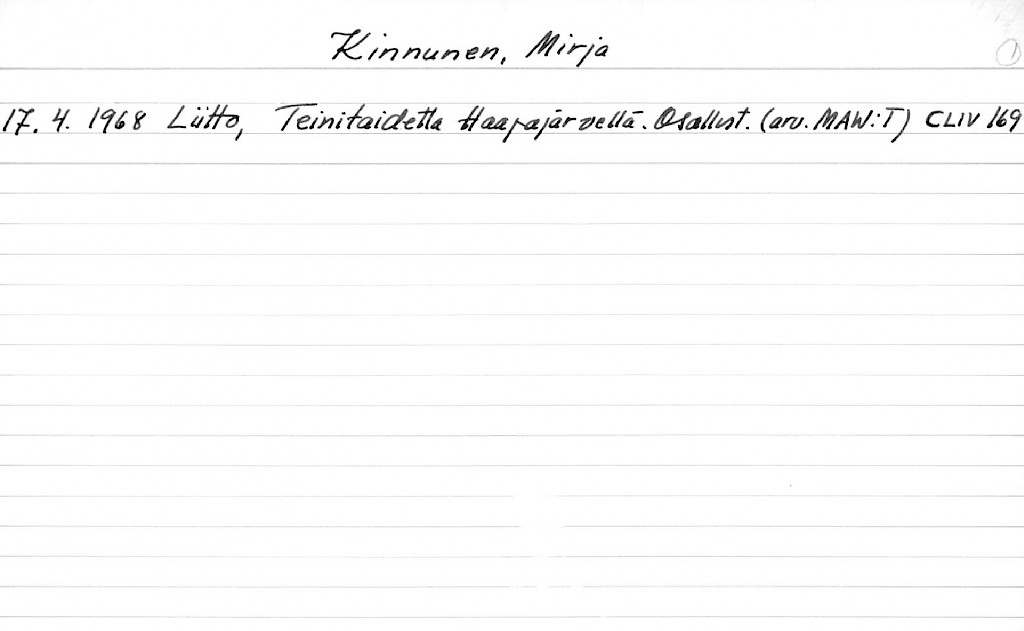 Kinnunen, Mirja
1
17. 4. 1968 Liitto, Teinitaidetta Haapajärvellä. Osallist. (arv. MAW:T) CLIV 169